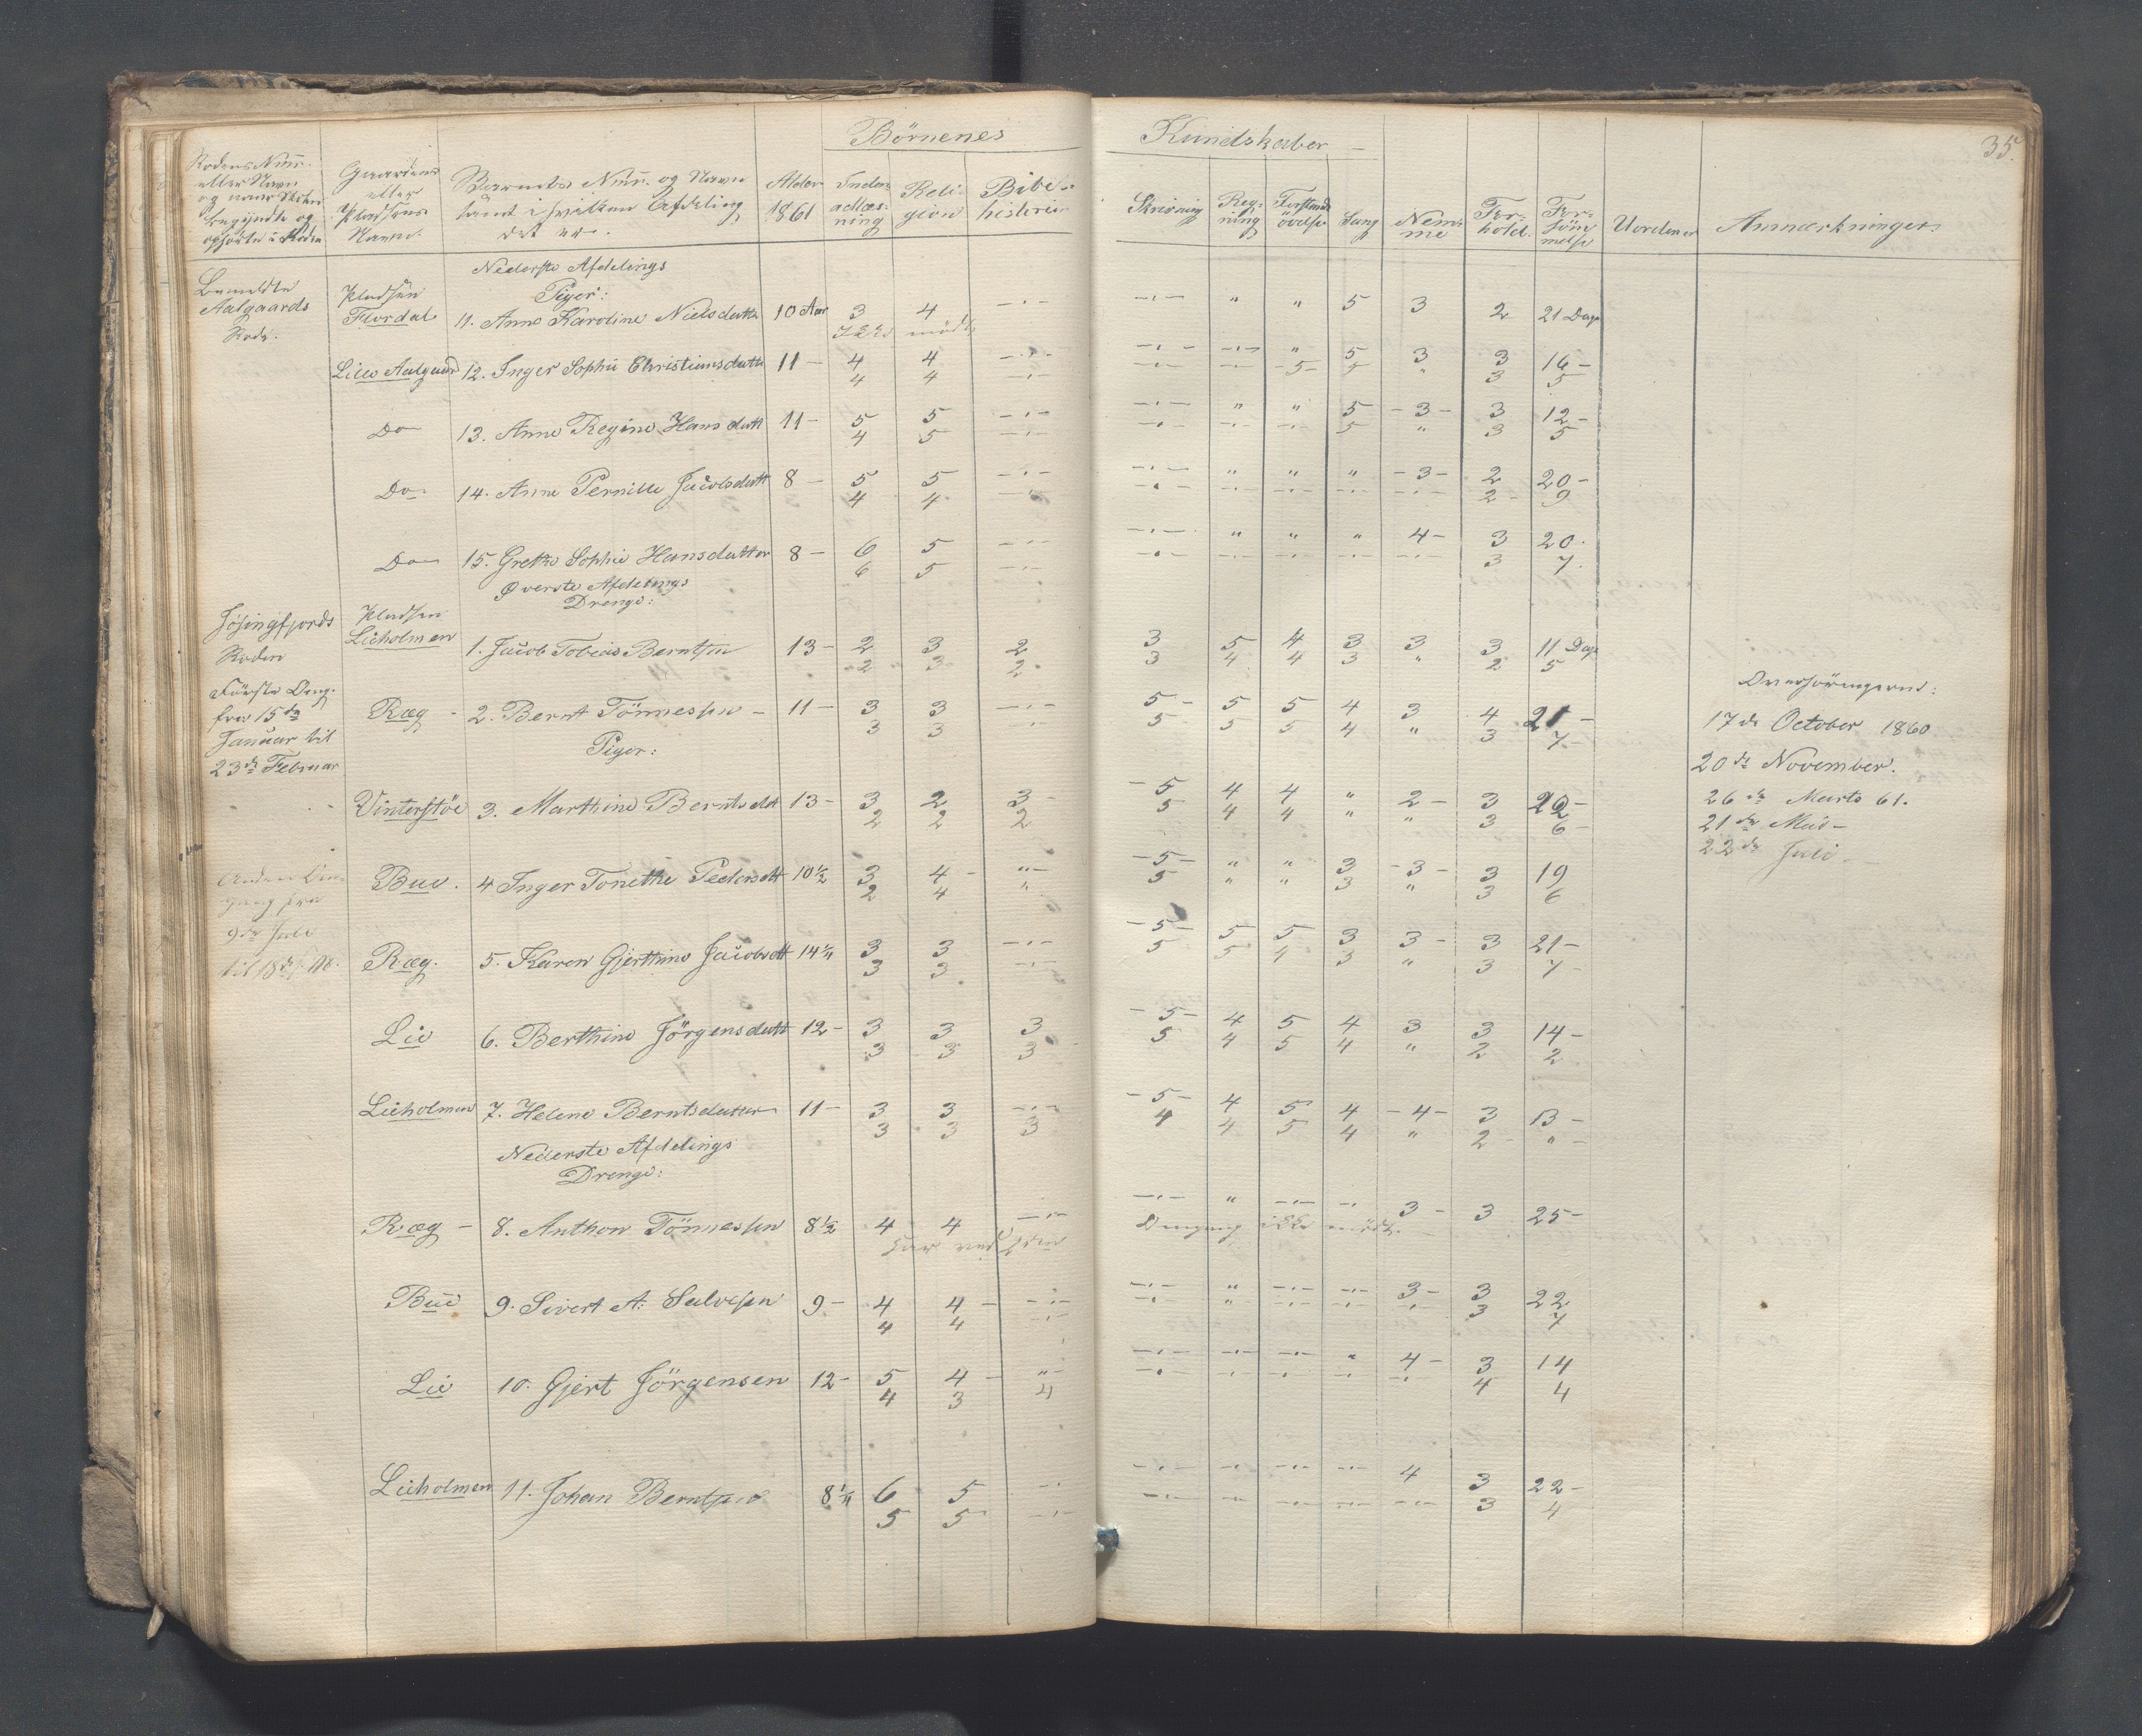 Börnenes Kundskaber 35.
Rodens Numr. eller Navn og naar Skolen begyndte og ophørte i Roden
Gaardens eller Pladsens Navn.
Barnets Numr. og Navn samt i hvilken Afdeling det er.
Alder 1861
Indenadlæsning
Religion
Bibelhistorie
Skrivning
Regning
Forstandsövelse
Sang
Nemme
Forhold.
Forsömmelse
Uordener
Anmærkninger.
Nederste Afdelings
Piger:
Bemeldte Aalgaards Rode.
Pladsen Flordal 11. Anne Karoline Nielsdatter 10 Aar 3 4 -"- -"- " " 5 3 2 21 Dage
Ikke mödt
Lille Aalgaard 12. Inger Sophie Christiansdatter 11 - 4 4 -"- -"- -"- " 5 3 3 16 -
4 4 -"- -"- -"- -5- 5 " 3 5
Do 13. Anne Regine Hansdatt 11 - 5 5 -"- -"- " " 5 -3- 3 12 -
4 5 -"- -"- -"- -"- 5 " 3 5
Do 14. Anne Pernille Jacobsdatt 8 - 5 5 -"- -"- " " " -3- 2 20 -
4 4 -"- -"- -"- -"- -"- -"- 2 - 9
Do 15. Grethe Sophie Hansdatter 8 - 6 5 -"- -"- " " " 4 - 3 20.
6 5 -"- -"- -"- -"- -"- -"- 3 7.
Øverste Afdelings
Drenge:
Jösingfjords Roden
Pladsen Lieholmen 1. Jacob Tobias Berntsen 13 - 2 3 2 3 5 4 3 3 3 11 Dage
2 3 2 3 4 4 3 " 2 5
Förste Omg. fra 15de Januar til 23de Februar
Ræg - 2. Bernt Tönnessen - 11 - 3 3 -"- 5 - 5 5 4 3 4 21 -
3 3 -"- 5 5 5 4 " 3 7 -
Piger:
Vinterstöe 3. Marthine Berntsdtt 13 - 3 2 3 - 5 4 4 " 2 - 3 22 -
2 2 2 5 4 4 " " 3 6 -
Anden Omgang fra 9de Juli til 18de
Bue. 4 Inger Tonethe Pedersdtt 10 1/2 3 4 - "- - 5 - " " 3 - 3 - 3 19
2 4 " 5 " " 3 " 3 6
Ræg. 5. Karen Gjerthine Jacobsdtt 14 1/4 3 3 -"- - 5 - 5 5 3 3 - 3 21 -
3 3 -"- 5 5 4 3 " 3 7 -
Lie 6. Berthine Jörgensdatt 12 - 3 3 3 - 5 - 4 5 4 3 3 14 -
3 3 3 5 4 5 4 " 2 2
Lieholmen 7. Helene Berntsdatter 11 - 3 3 -"- - 5 - 4 5 4 - 4 - 3 13 -
3 3 3 4 4 5 4 " 2 - " -
Nederste Afdelings
Drenge:
Ræg - 8. Anthon Tönnessen 8 1/2 4 4 -"- -"- " -"- -"- 3 - 3 25 -
har ved Omgang ikke mödt.
Bue 9. Sivert A. Salvesen 9 - 4 4 - -"- -"- " -"- -"- 3 - 3 22
4 4 -"- -"- " -"- -"- -"- 3 7
Lie 10. Gjert Jörgensen 12 - 5 4 - "- -"- -"- -"- " 4 - 3 14
4 3 4 -"- -"- -"- -"- -"- 4 4
Lieholmen 11. Johan Berntsen 8 1/4 6 5 -"- -"- -"- -"- -"- 4 3 22 -
5 5 -"- -"- -"- -"- -"- -"- 3 4
17de October 1860
20de November.
26de Marts 61.
21de Mai -
22de Juli -